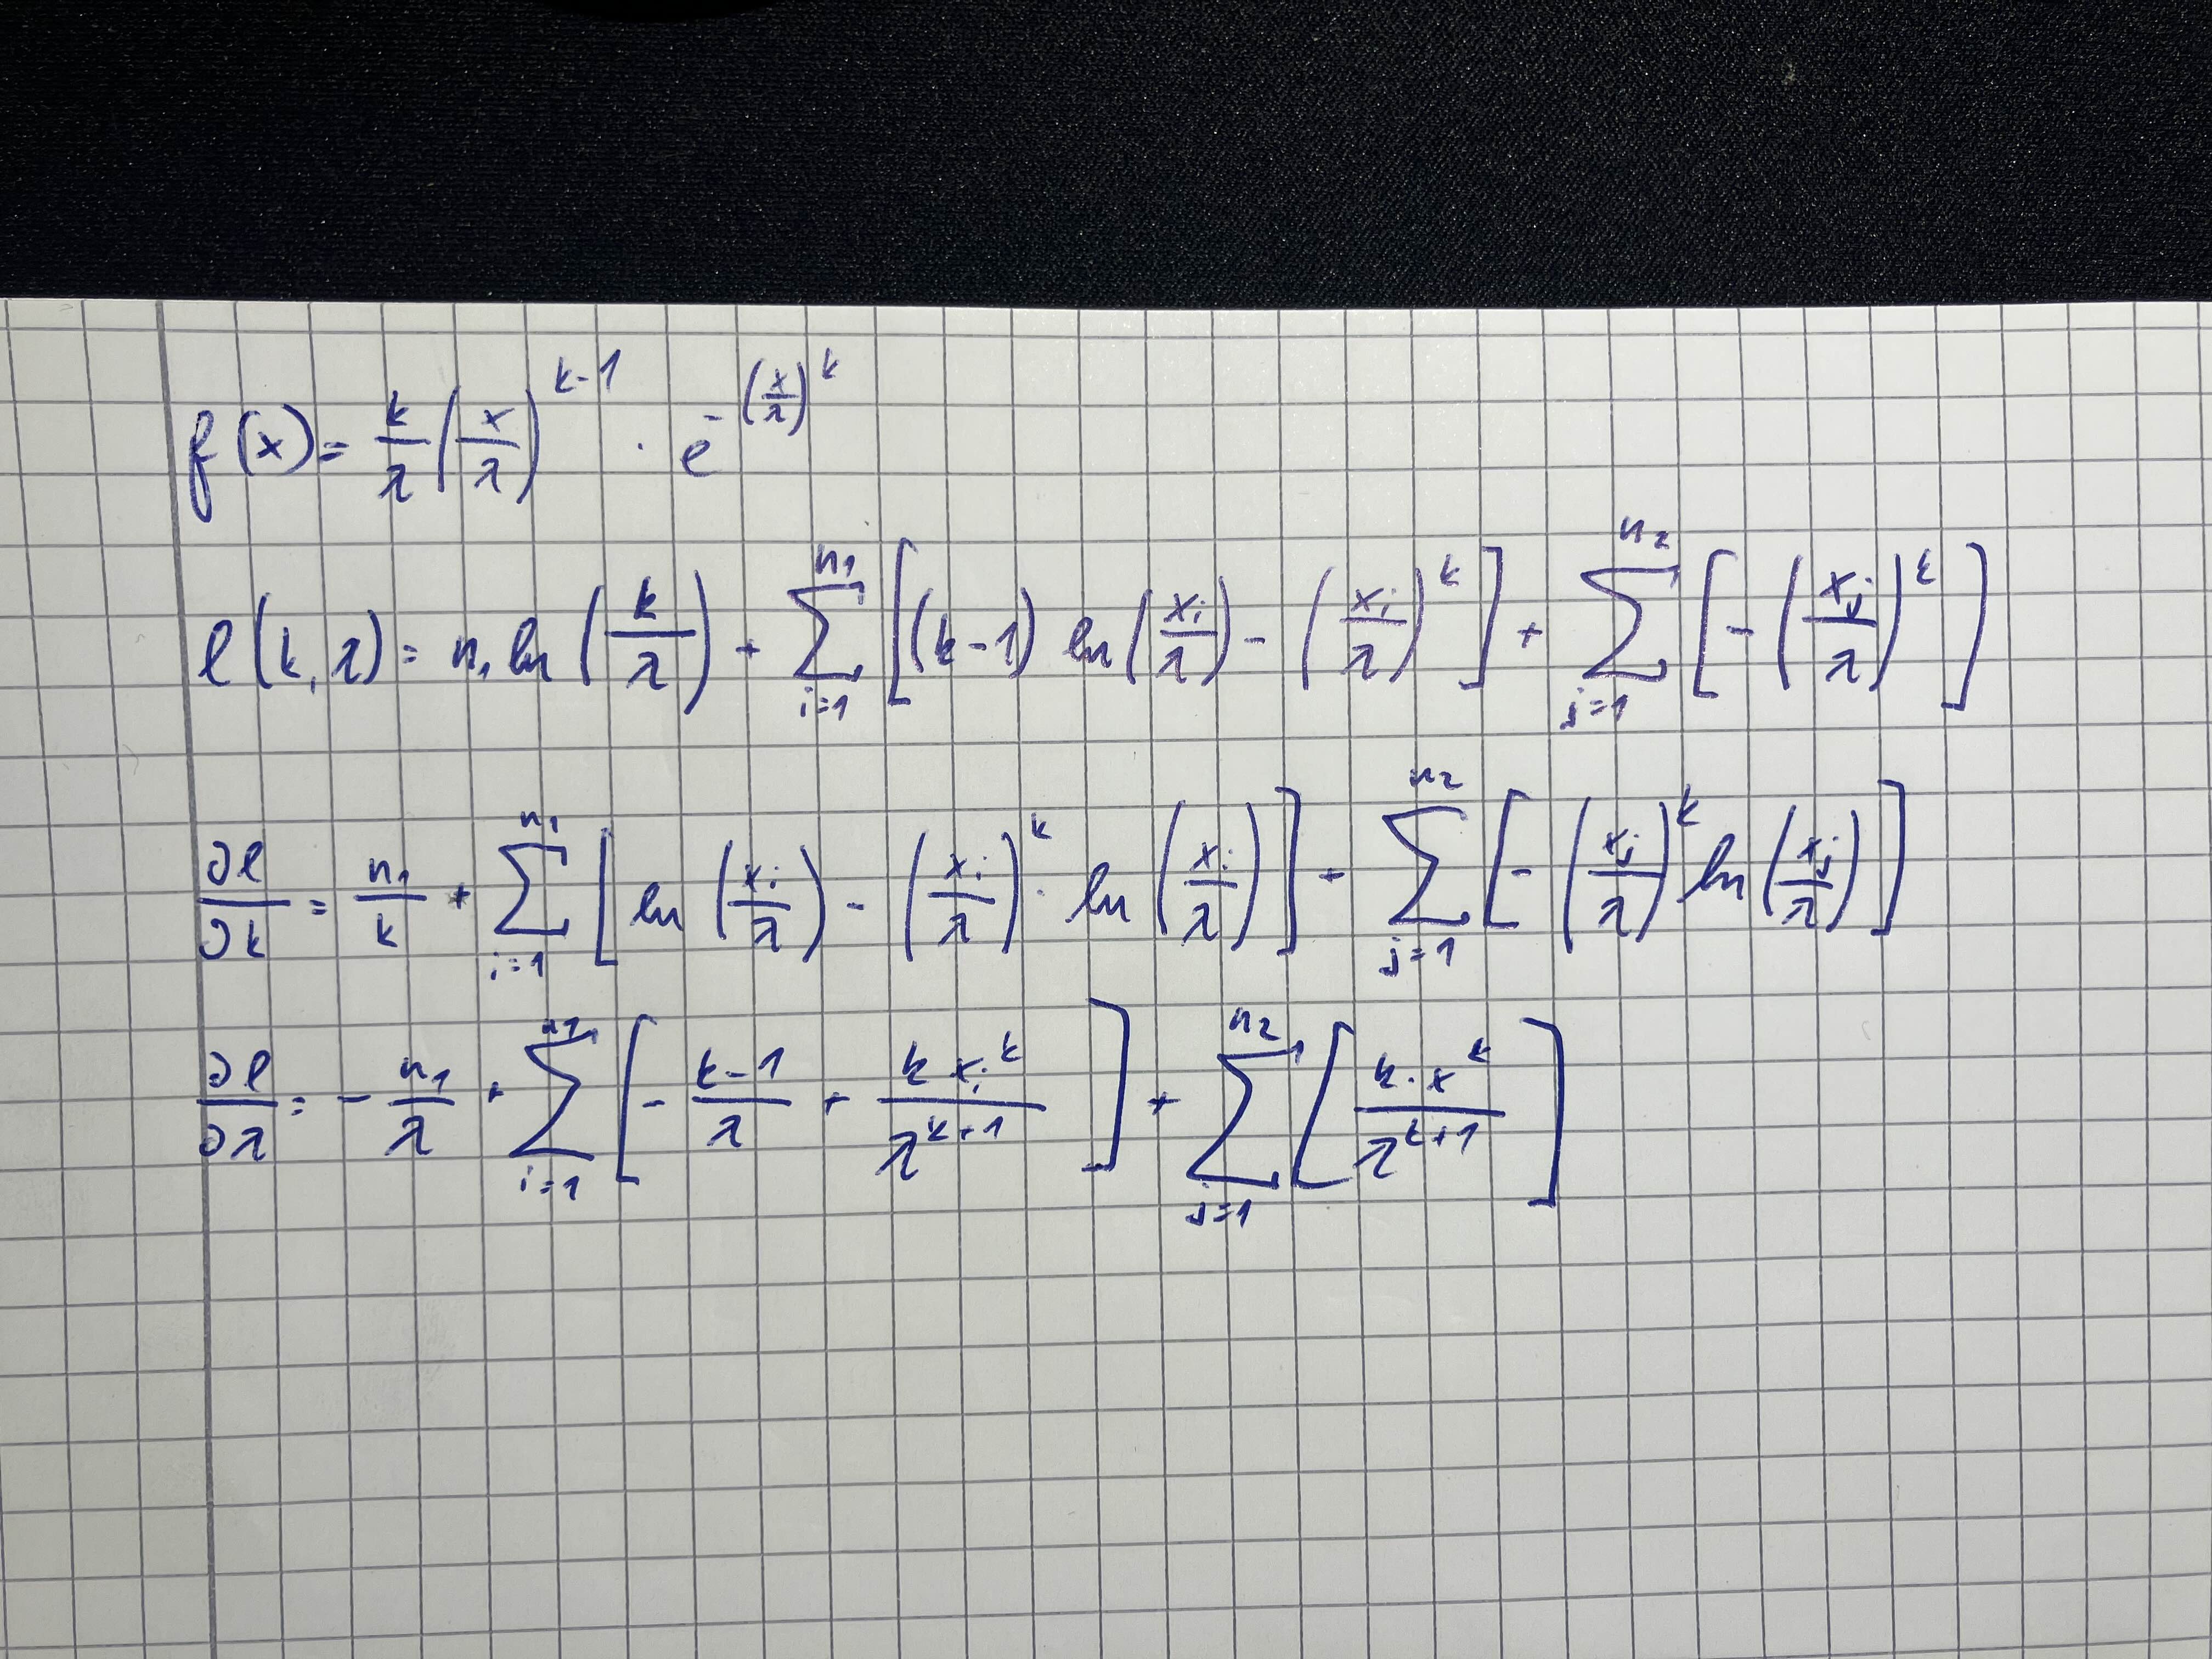 f(x) = k/λ (x/λ)^(k-1) · e^(-(x/λ)^k)
ℓ(k, λ) = n₁ ln(k/λ) + ∑_{i=1}^{n₁} [(k-1) ln(xᵢ/λ) - (xᵢ/λ)^k] + ∑_{j=1}^{n₂} [-(xⱼ/λ)^k]
∂ℓ/∂k = n₁/k + ∑_{i=1}^{n₁} [ln(xᵢ/λ) - (xᵢ/λ)^k · ln(xᵢ/λ)] + ∑_{j=1}^{n₂} [-(xⱼ/λ)^k ln(xⱼ/λ)]
∂ℓ/∂λ = - n₁/λ + ∑_{i=1}^{n₁} [- (k-1)/λ + (k xᵢ^k)/(λ^(k+1))] + ∑_{j=1}^{n₂} [(k · x^k)/(λ^(k+1))]